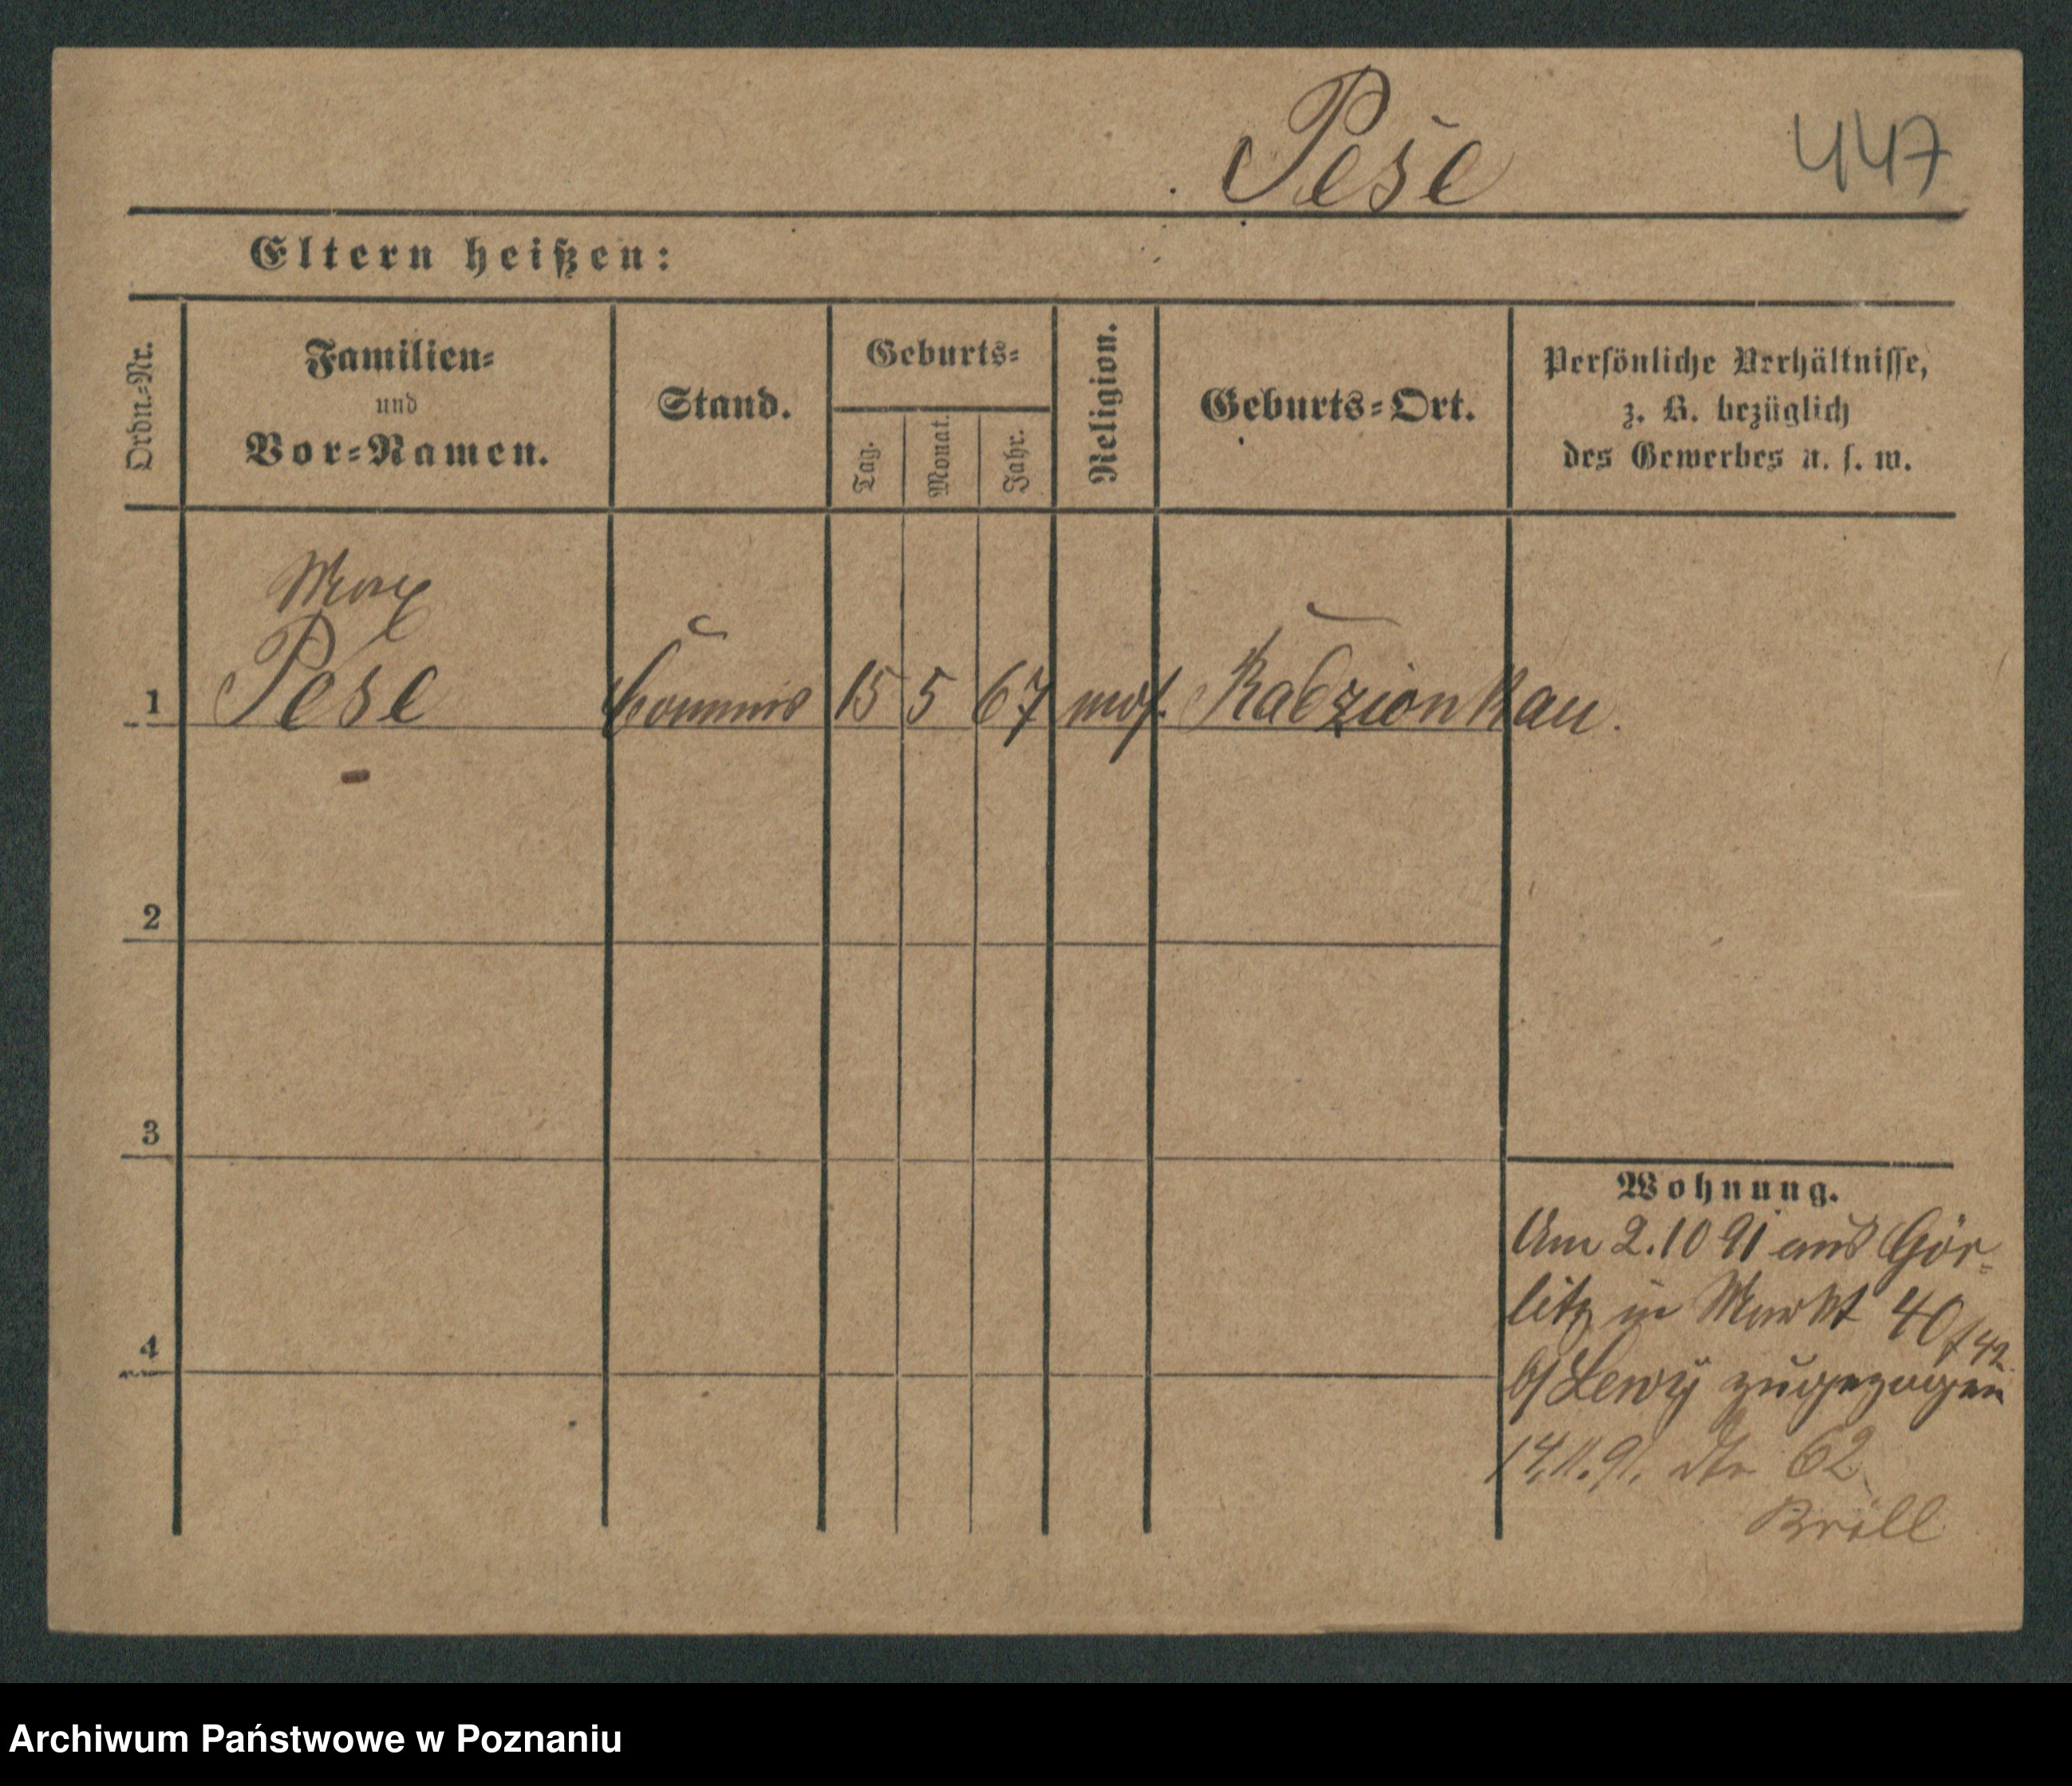 Pese 447
Eltern heißen:
Ordn.-Nr.
Familien-
und
Vor-Namen.
Stand.
Geburts-
Tag.
Monat.
Jahr.
Religion.
Geburts-Ort.
Persönliche Verhältnisse,
z. B. bezüglich
des Gewerbes u. s. w.
Max
1 Pese Commis 15 5 67 mos. Radzionkau.
2
3
4
Wohnung.
Am 2.10 91 aus Gör-
litz in Markt 40/42
b/ Lewy zugezogen
14.11.91. 62